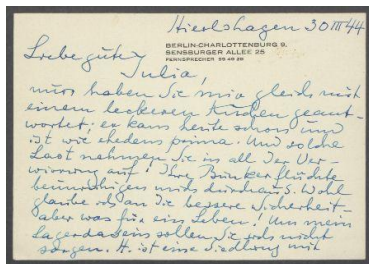 Hierlshagen 30 III 44
BERLIN-CHARLOTTENBURG 9.
SENSBURGER ALLEE 25
FERNSPRECHER
Liebe gute
Julia,
nun haben Sie mir gleich mit
einem leckeren Kuchen geant-
wortet; er kam heute schon und
ist wie ehedem prima. Und solche
Last nehmen Sie in all der Ver-
wirrung auf! Ihre Bunkerflüchte
beunruhigen mich durchaus. Wohl
glaube ich an die bessere Sicherheit -
aber was für ein Leben! Um mein
Lagerdasein sollen Sie sich nicht
sorgen. H. ist eine Siedlung mit